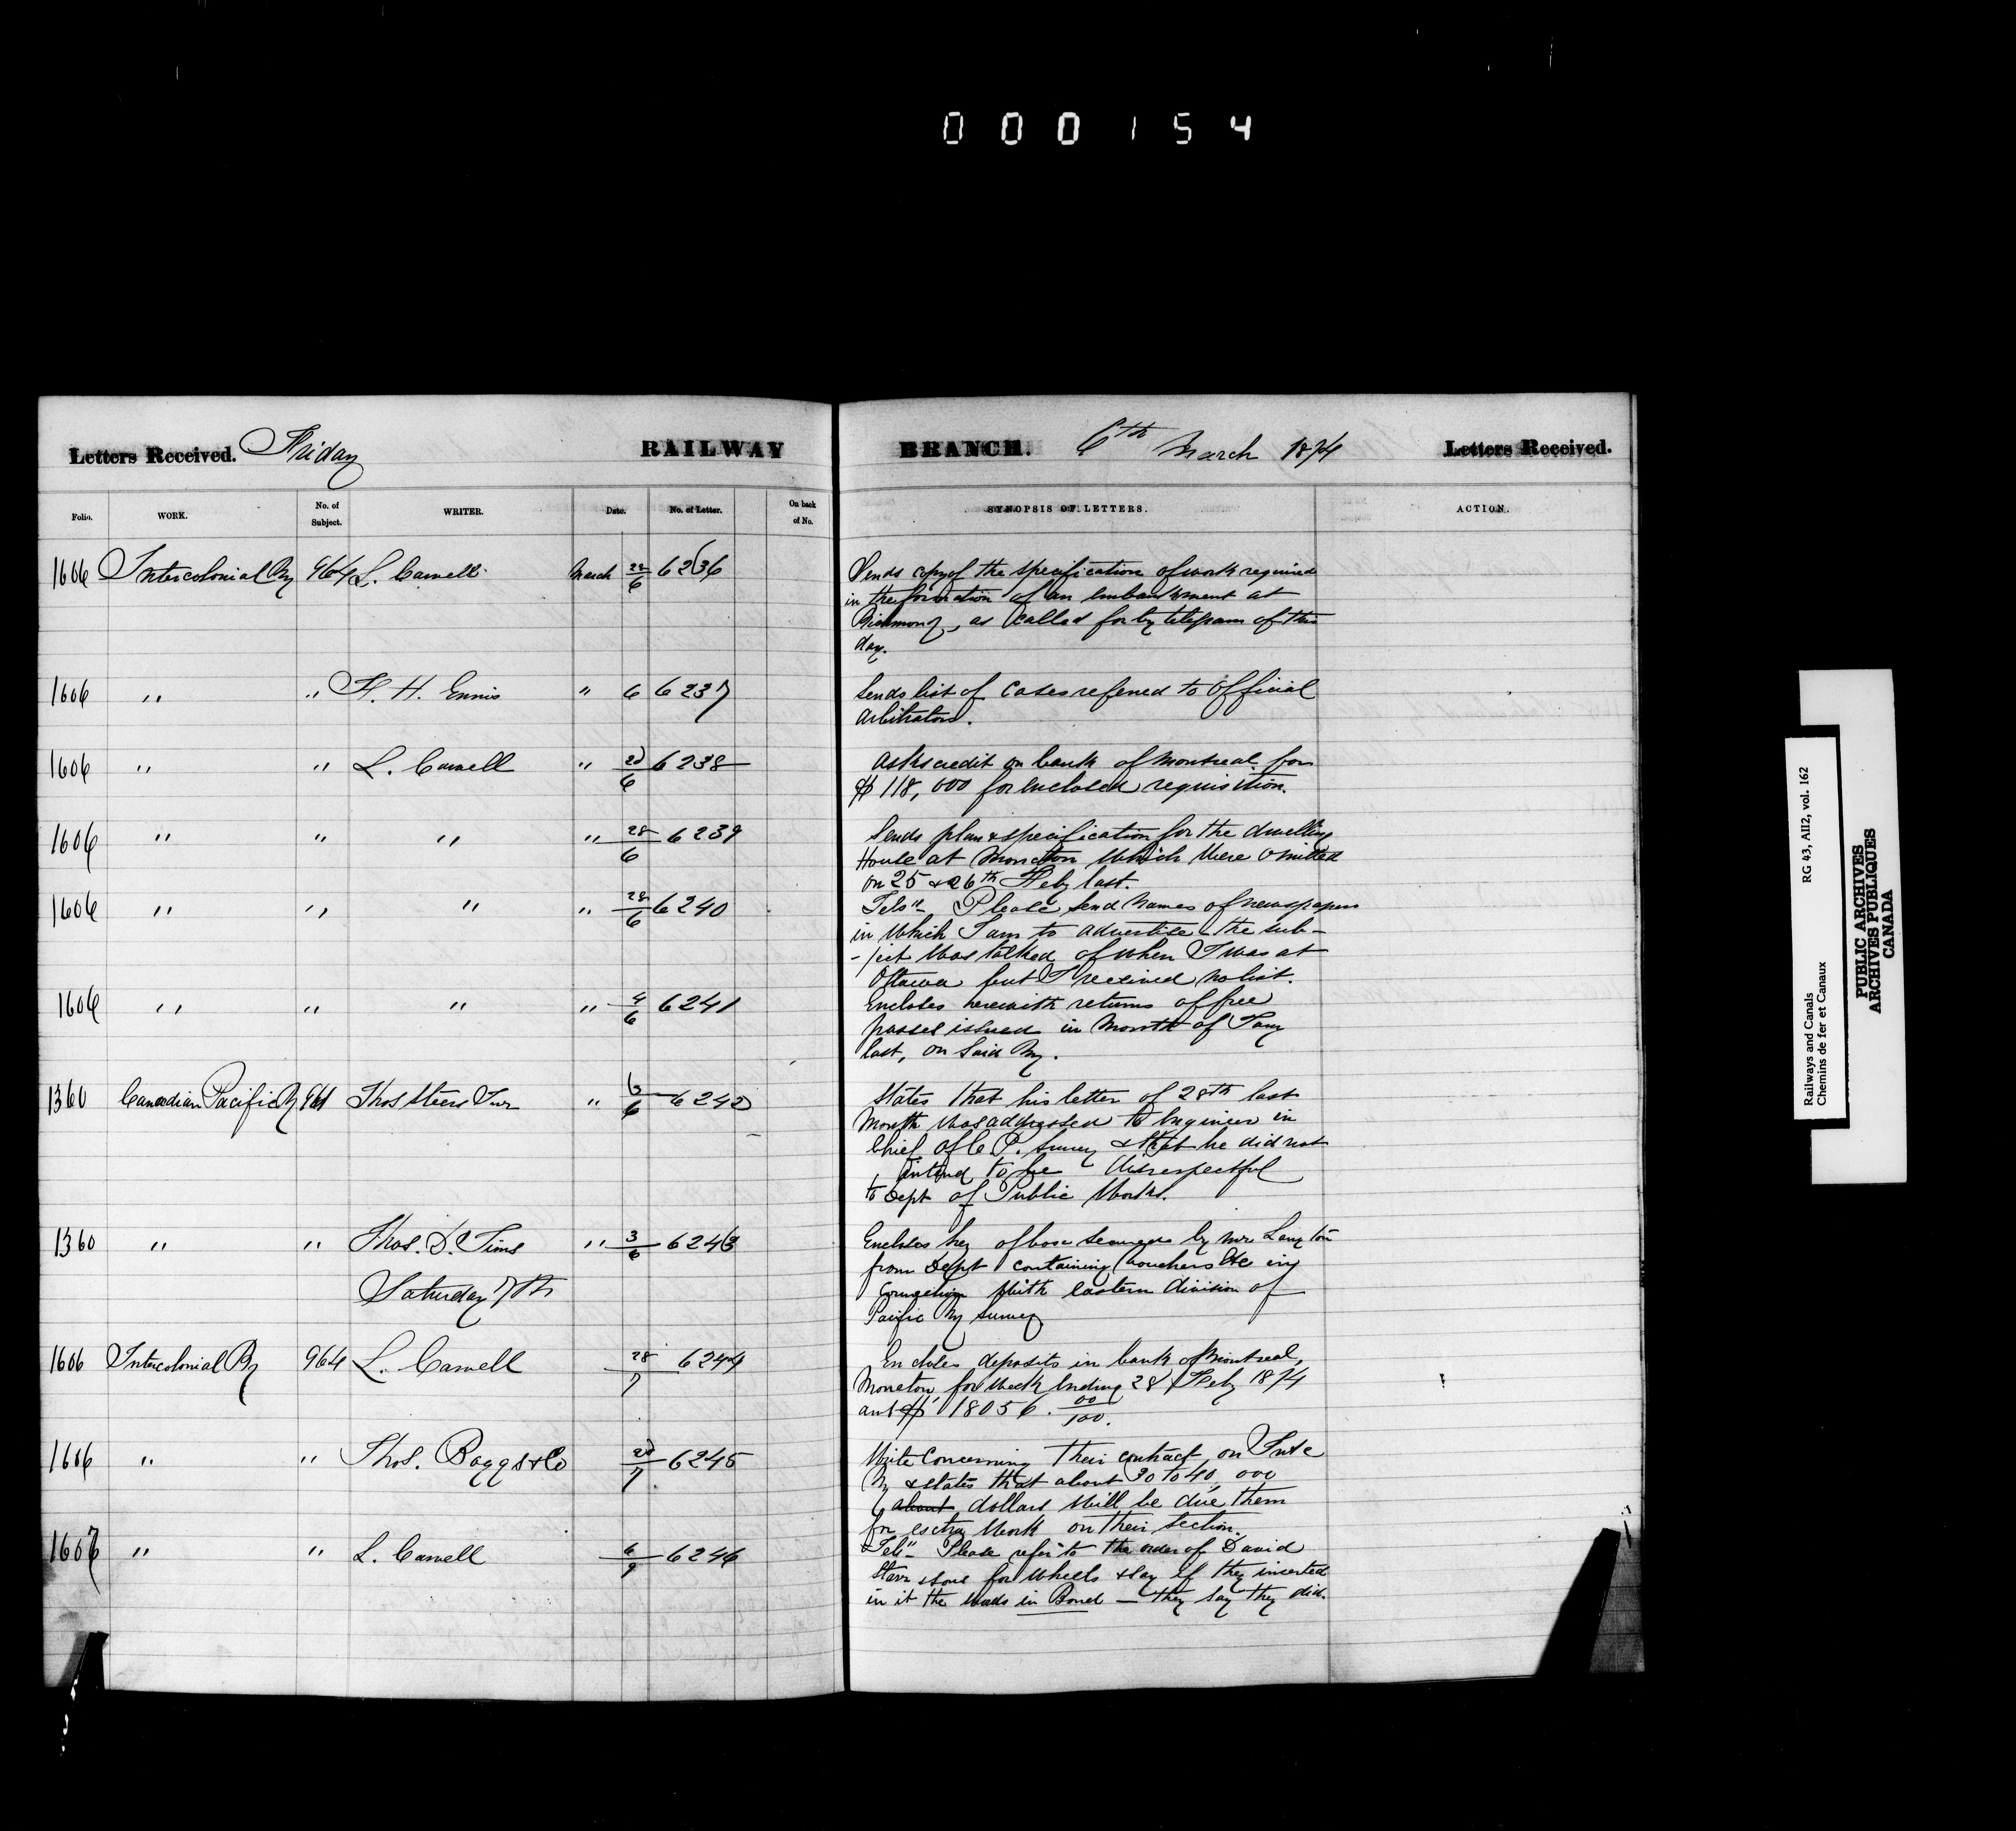 000154
Letters Received. Friday RAILWAY BRANCH. 6th March 1874 Letters Received.
Folio. WORK. No. of Subject. WRITER. Date. No. of Letter. On back of No. SYNOPSIS OF LETTERS. ACTION.
1606 Intercolonial Ry 964 L. Carvell March 28/6 6236 Sends copy of the specification of work required
in the formation of an embankment at
Richmond, as called for by telegram of this
day.
1606 " " H. H. Ennis " 6 6237 Sends list of cases referred to Official
Arbitrators.
1606 " " L. Carvell " 28/6 6238 Asks credit on bank of Montreal for
$118,000 for enclosed requisition.
1606 " " " " 28/6 6239 Sends plan & specification for the dwelling
House at Moncton which were omitted
on 25 & 26th Feby last.
1606 " " " " 28/6 6240 Tels" - Please send names of newspapers
in which I am to advertise the sub-
-ject was talked of when I was at
Ottawa but I received no list.
1606 " " " " 4/6 6241 Encloses herewith returns of free
passes issued in month of Jany
last, on said Ry.
1360 Canadian Pacific Ry 961 Thos Steers Junr " 6/6 6242 States that his letter of 28th last
month was addressed to Engineer in
Chief of C P. Survey & that he did not
intend to be disrespectful
to Dept of Public Works.
1360 " " Thos. D. Tims " 3/6 6243 Encloses key of box secured by Mr Langton
from Dept containing vouchers &c in
connection with eastern division of
Pacific Ry Survey
Saturday 7th
1606 Intercolonial Ry 964 L. Carvell 28/7 6244 Encloses deposits in bank of Montreal,
Moncton for week ending 28 Feby 1874
amt $ 18056. 00/100.
1606 " " Thos. Boggs & Co 28/7 6245 Write concerning their contract on Inte
Ry & states that about 30 to 40,000
about dollars will be due them
for extra work on their section.
1606 " " L. Carvell 6/7 6246 Tels" - Please refer to the order of David
Starr & Sons for wheels & say if they inserted
in it the words in Bond — they say they did.
Railways and Canals RG 43, AII2, vol. 162
Chemins de fer et Canaux
PUBLIC ARCHIVES
ARCHIVES PUBLIQUES
CANADA